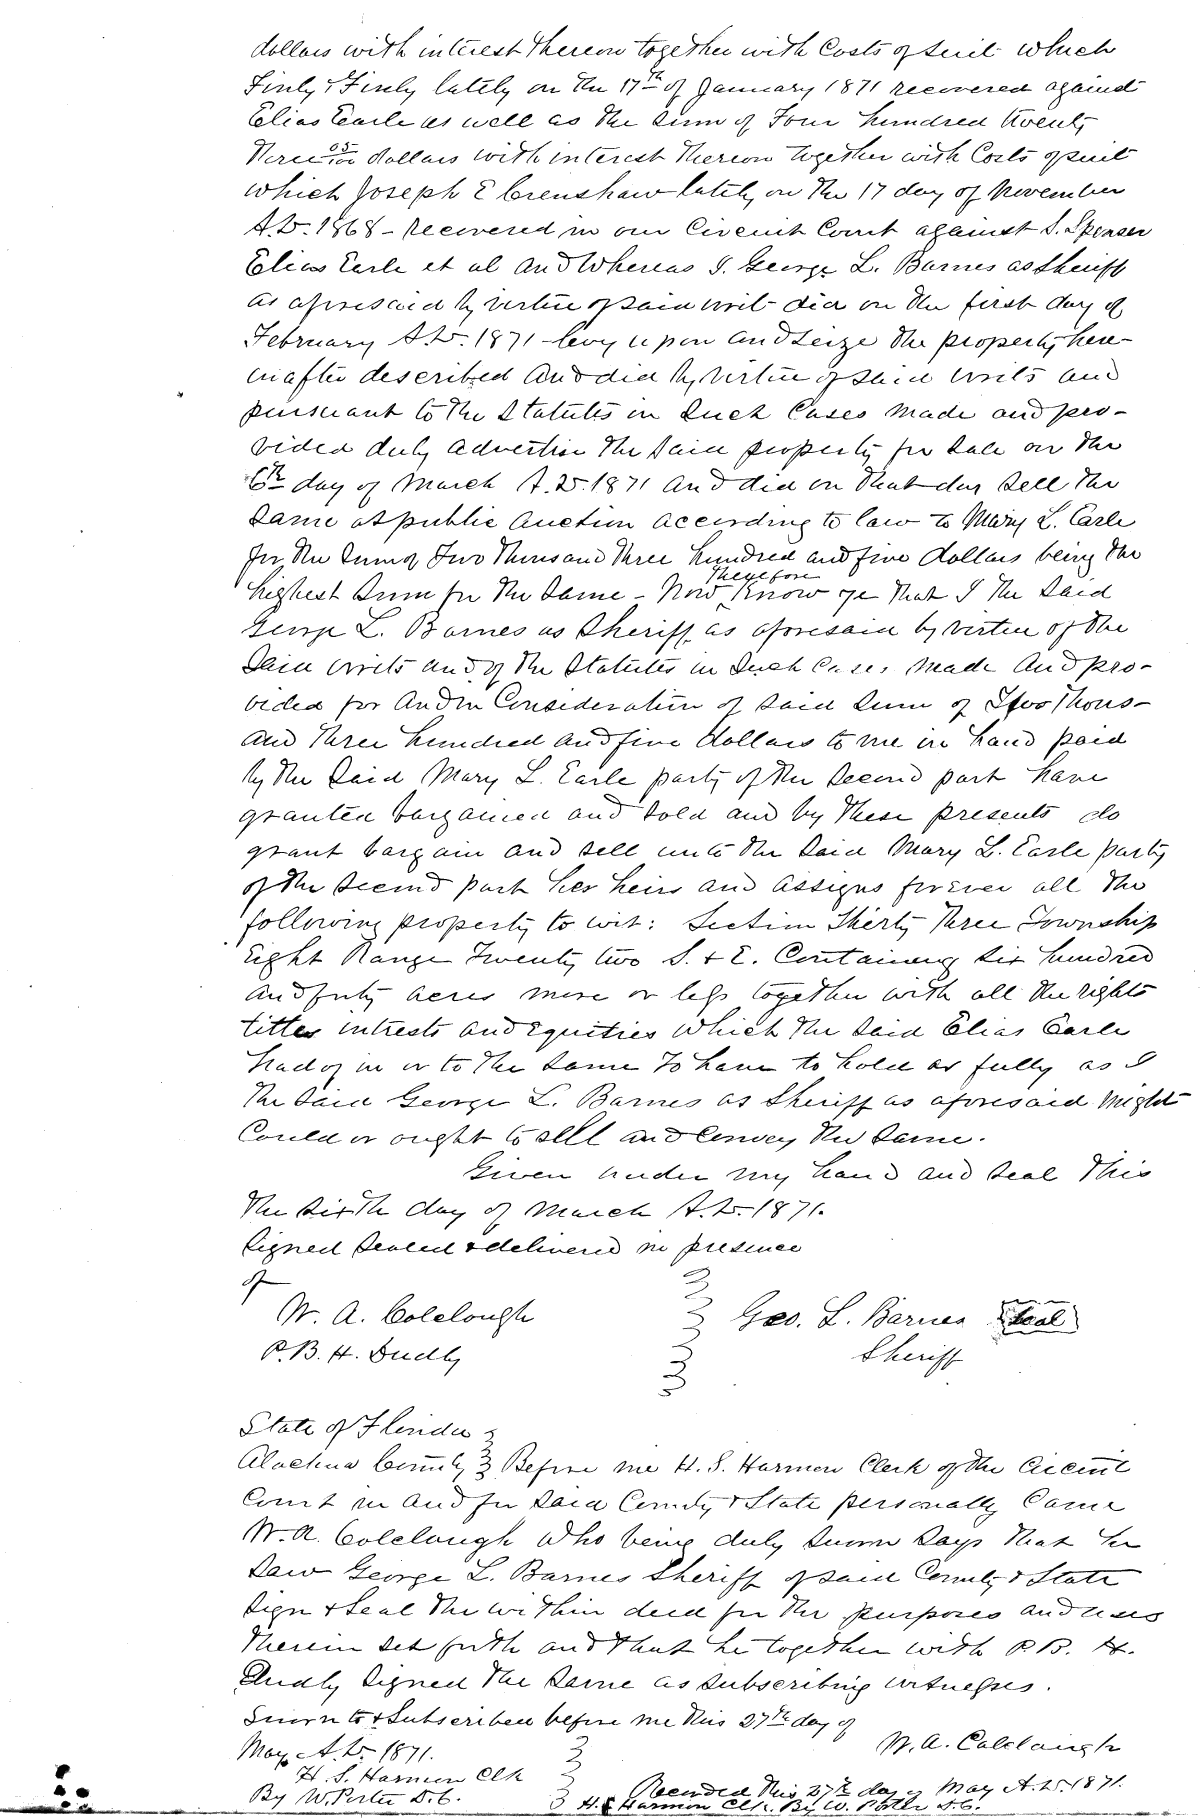 dollars with interest thereon together with Costs of suit which
Finly & Finly lately on the 17th of January 1871 recovered against
Elias Earle as well as the sum of Four hundred twenty
three 05/100 dollars with interest thereon together with Costs of suit
which Joseph E Crenshaw lately on the 17 day of November
A.D. 1868 - recovered in our Circuit Court against S. Spenser
Elias Earle et al and Whereas I. George L. Barnes as Sheriff
as aforesaid by virtue of said writ did on the first day of
February A.D. 1871 - levy upon and seize the property here-
inafter described and did by virtue of said writs and
pursuant to the Statutes in Such Cases made and pro-
vided duly advertise the said property for Sale on the
6th day of March A.D. 1871 and did on that day sell the
same at public auction according to law to Mary L. Earle
for the sum of Two Thousand three hundred and five dollars being the
highest sum for the same - Now Therefore Know ye that I the said
George L. Barnes as Sheriff as aforesaid by virtue of the
said writs and of the Statutes in Such Cases made and pro-
vided for and in Consideration of said sum of Two Thous-
and three hundred and five dollars to me in hand paid
by the said Mary L. Earle party of the second part have
granted bargained and sold and by these presents do
grant bargain and sell unto the said Mary L. Earle party
of the second part her heirs and assigns forever all the
following property to wit: Section Thirty three Township
Eight Range Twenty two S. & E. Containing six hundred
and forty acres more or less together with all the rights
titles intrests and equities which the said Elias Earle
had of in or to the same to have to hold as fully as I
the said George L. Barnes as Sheriff as aforesaid might
Could or ought to sell and Convey the same.
Given under my hand and seal this
the sixth day of March A.D. 1871.
Signed sealed & delivered in presence
of
W. A. Colclough
P. B. H. Dudly
Geo. L. Barnes Seal
Sheriff
State of Florida
Alachua County Before me H. S. Harmon Clerk of the Circuit
Court in and for said County & State personally Came
W. A. Colclough who being duly sworn says that he
saw George L. Barnes Sheriff of said County & State
sign & seal the within deed for the purposes and uses
therein set forth and that he together with P. B. H.
Dudly signed the same as subscribing witnesses.
Sworn to & Subscribed before me this 27th day of
May A.D. 1871.
W. A. Colclough
H. S. Harmon Clk
By W. Porter D.C.
Recorded this 27th day of May A.D. 1871.
H. S Harmon Clk. By W. Porter D.C.